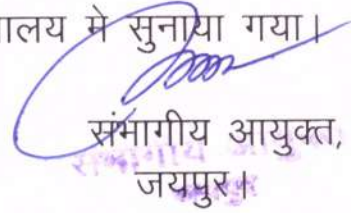 ालय मे सुनाया गया।
संभागीय आयुक्त,
जयपुर।